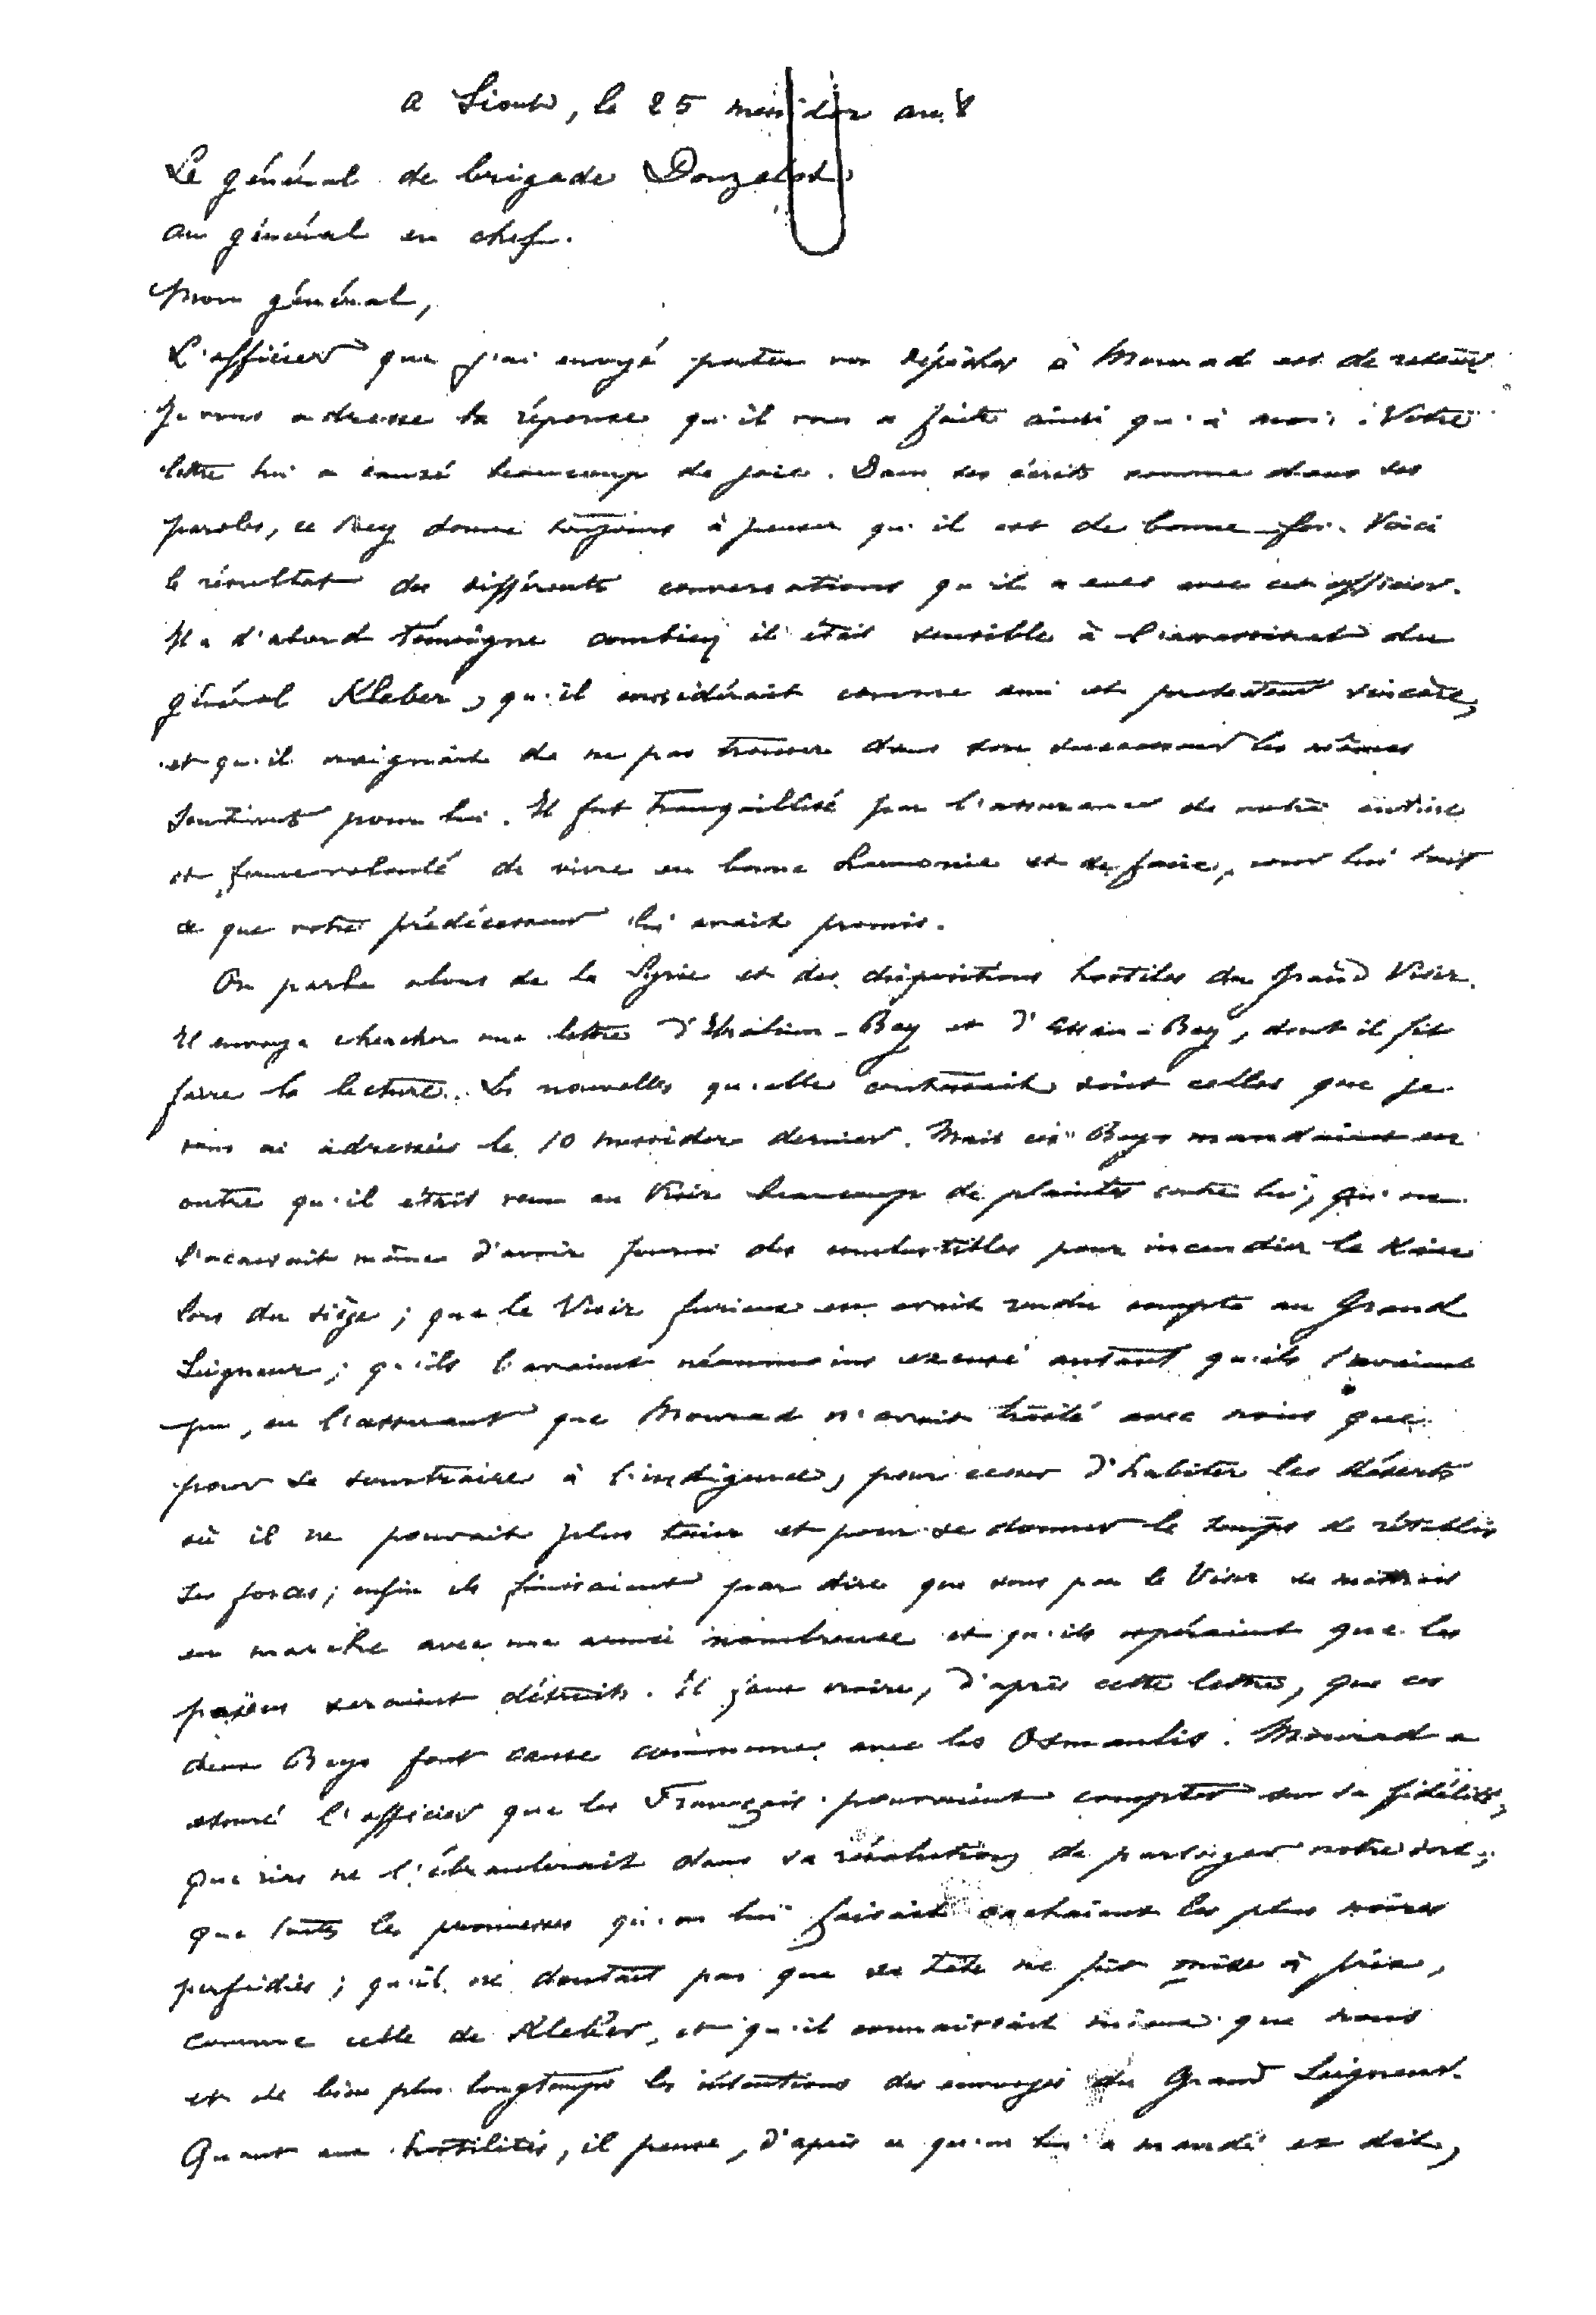 a Siout, le 25 messidor an 8
Le général de brigade Donzelot
au général en chef.
Mon général,
L'officier que j'ai envoyé porter vos dépêches à Mourad est de retour.
Je vous adresse la réponse qu'il vous a faite ainsi qu'à moi. Votre
lettre lui a causé beaucoup de joie. Dans ses écrits comme dans ses
paroles, ce Bey donne toujours à penser qu'il est de bonne foi. Voici
le résultat des différents conversations qu'il a eues avec cet officier.
Il a d'abord témoigné combien il était sensible à l'assassinat du
général Kleber, qu'il considérait comme ami et protecteur sincère,
et qu'il craignait de ne pas trouver dans son successeur les mêmes
sentiments pour lui. Il fut tranquillisé par l'assurance de votre entière
et ferme volonté de vivre en bonne harmonie et de faire pour lui tout
ce que votre prédécesseur lui avait promis.
On parla alors de la Syrie et des dispositions hostiles du Grand Visir.
Il envoya chercher une lettre d'Ibrahim-Bey et d'Assan-Bey, dont il fit
faire la lecture. Les nouvelles qu'elle contenait sont celles que je
vous ai adressées le 10 messidor dernier. Mais ces Beys mandaient en
outre qu'il était venu au Visir beaucoup de plaintes contre lui, qu'on
l'accusait même d'avoir fourni des combustibles pour incendier le Kaire
lors du siège ; que le Visir furieux en avait rendu compte au Grand
Seigneur ; qu'ils l'avaient néanmoins excusé autant qu'ils l'avaient
pu, en l'assurant que Mourad n'avait traité avec nous que
pour se soustraire à l'indigence, pour cesser d'habiter les déserts
où il ne pouvait plus tenir et pour se donner le temps de rétablir
ses forces ; enfin ils finissaient par dire que sous peu le Visir se mettrait
en marche avec une armée nombreuse et qu'ils espéraient que les
païens seraient détruits. Il faut croire, d'après cette lettre, que ces
deux Beys font cause commune avec les Osmanlis. Mourad a
assuré l'officier que les Français pouvaient compter sur sa fidélité,
que rien ne l'ébranlerait dans sa résolution de partager notre sort ;
que toutes les promesses qu'on lui faisait cachaient les plus noires
perfidies ; qu'il ne doutait pas que sa tête ne fût mise à prix,
comme celle de Kleber, et qu'il connaissait mieux que nous
et de bien plus longtemps les intentions des envoyés du Grand Seigneur.
Quant aux hostilités, il pense, d'après ce qu'on lui a mandé et dit,